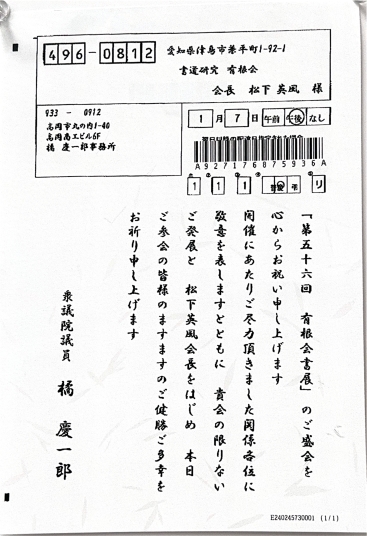 496-0812
愛知県津島市兼平町1-92-1
書道研究 有根会
会長 松下 英風 様
933 - 0912
高岡市丸の内1-40
高岡商工ビル6F
橘 慶一郎事務所
1月7日 午前 午後 なし
A927176875936A
1 1 1 リ
「第五十六回 有根会書展」のご盛会を
心からお祝い申し上げます
開催にあたりご尽力頂きました関係各位に
敬意を表しますとともに 貴会の限りない
ご発展と 松下英風会長をはじめ 本日
ご参会の皆様のますますのご健勝ご多幸を
お祈り申し上げます
衆議院議員 橘 慶一郎
E24024573D001 (1/1)